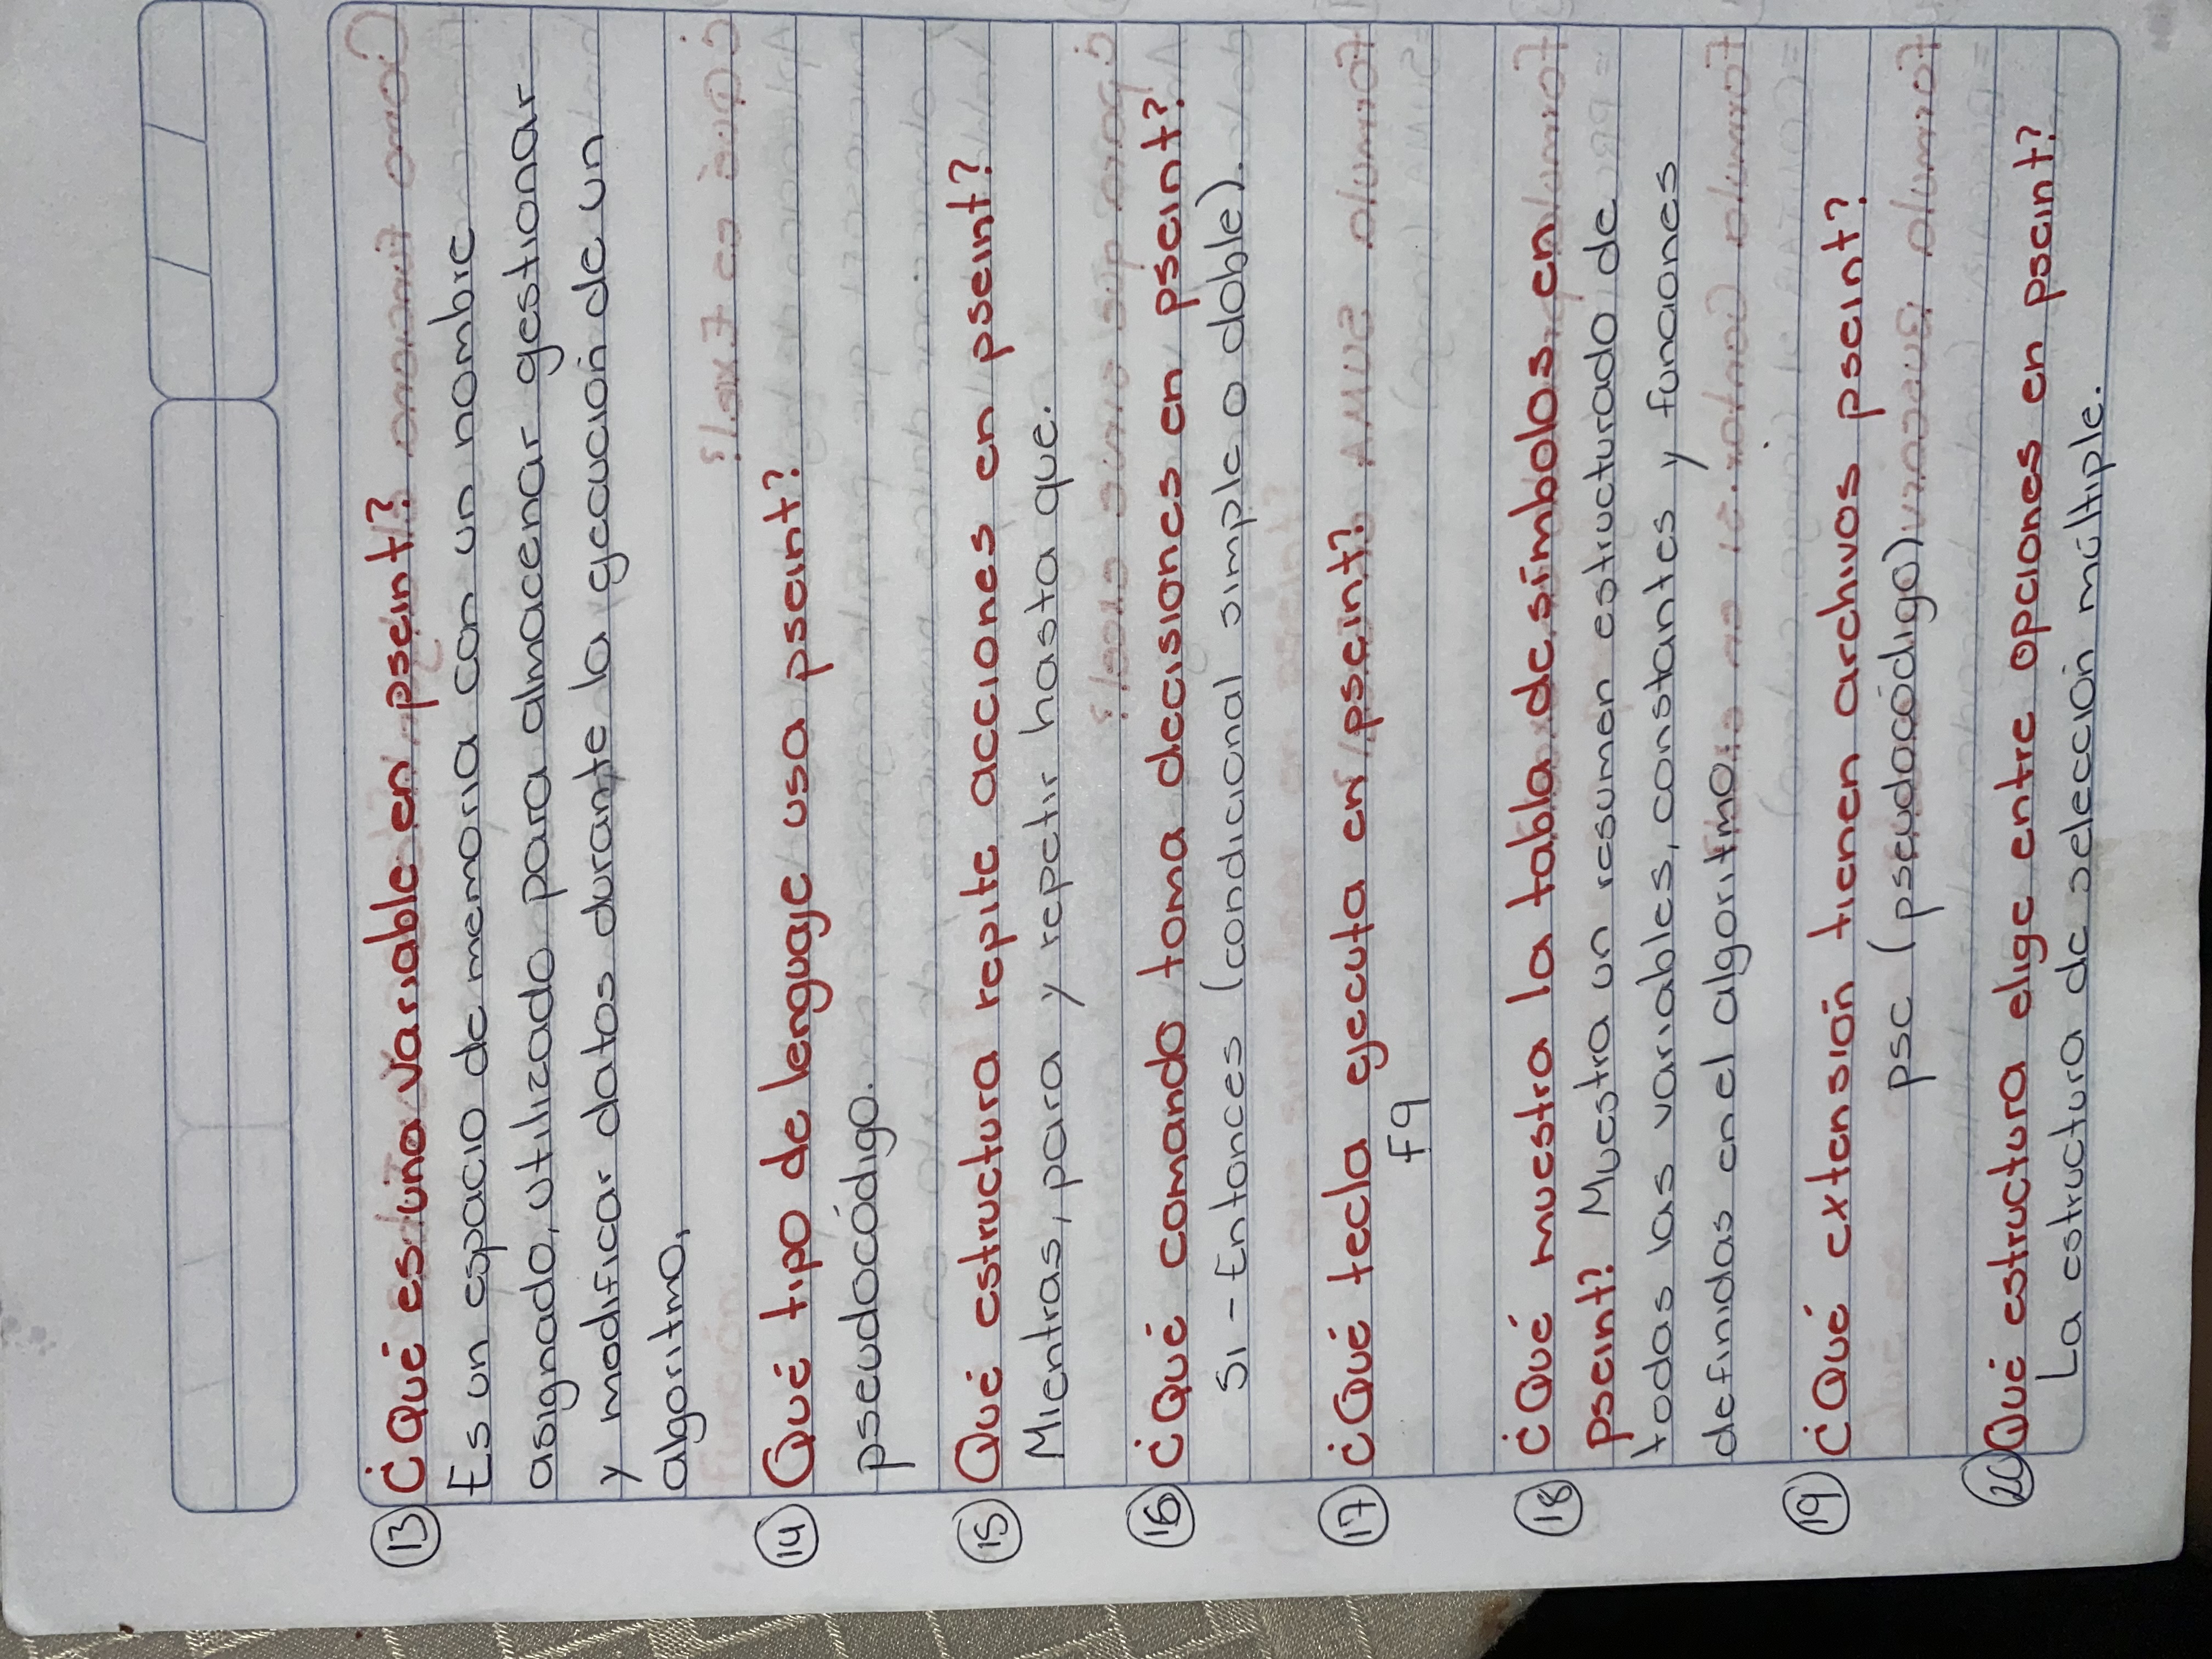 13 ¿Qué es una variable en pseint?
Es un espacio de memoria con un nombre
asignado, utilizado para almacenar gestionar
y modificar datos durante la ejecución de un
algoritmo,
14 Qué tipo de lenguaje usa pseint?
pseudocódigo.
15 Qué estructura repite acciones en pseint?
Mientras, para y repetir hasta que.
16 ¿Qué comando toma decisiones en pseint?
Si - Entonces (condicional simple o doble).
17 ¿Qué tecla ejecuta en pseint?
F9
18 ¿Qué muestra la tabla de símbolos en
pseint? Muestra un resumen estructurado de
todas las variables, constantes y funciones
definidas en el algoritmo.
19 ¿Qué extensión tienen archivos pseint?
psc (pseudocódigo)
20 Qué estructura elige entre opciones en pseint?
La estructura de selección múltiple.